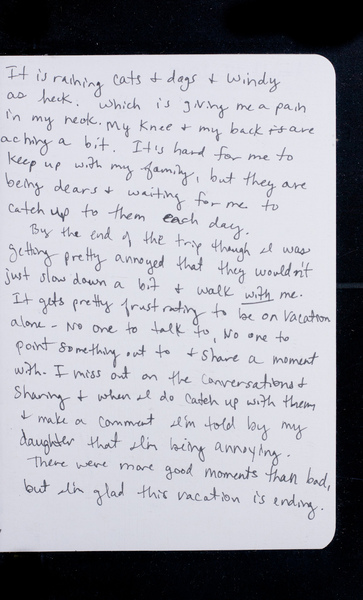 It is raining cats & dogs & windy
as heck. Which is giving me a pain
in my neck. My knee & my back are
aching a bit. It's hard for me to
keep up with my family, but they are
being dears & waiting for me to
catch up to them each day.
By the end of the trip though I was
getting pretty annoyed that they wouldn't
just slow down a bit & walk with me.
It gets pretty frustrating to be on vacation
alone - No one to talk to, No one to
point something out to & share a moment
with. I miss out on the conversations &
sharing & when I do catch up with them,
& make a comment I'm told by my
daughter that I'm being annoying.
There were more good moments than bad,
but I'm glad this vacation is ending.